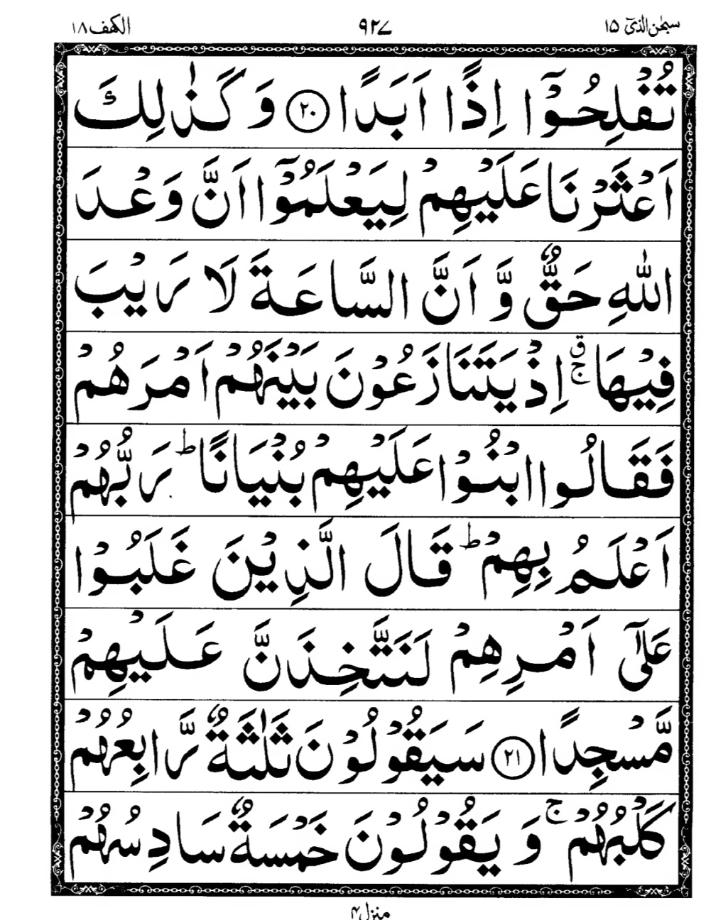 سبحٰن الذیٓ ۱۵ ۹۲۷ الکہف ۱۸
تُفْلِحُوْۤا اِذًا اَبَدًا ﴿۲۰﴾ وَ كَذٰلِكَ
اَعْثَرْنَا عَلَيْهِمْ لِيَعْلَمُوْۤا اَنَّ وَعْدَ
اللّٰهِ حَقٌّ وَّ اَنَّ السَّاعَةَ لَا رَيْبَ
فِيْهَا ۚۗ اِذْ يَتَنَازَعُوْنَ بَيْنَهُمْ اَمْرَهُمْ
فَقَالُوا ابْنُوْا عَلَيْهِمْ بُنْيَانًا ؕ رَبُّهُمْ
اَعْلَمُ بِهِمْ ؕ قَالَ الَّذِيْنَ غَلَبُوْا
عَلٰۤى اَمْرِهِمْ لَنَتَّخِذَنَّ عَلَيْهِمْ
مَّسْجِدًا ﴿۲۱﴾ سَيَقُوْلُوْنَ ثَلٰثَةٌ رَّابِعُهُمْ
كَلْبُهُمْ ۚ وَ يَقُوْلُوْنَ خَمْسَةٌ سَادِسُهُمْ
منزل ۴